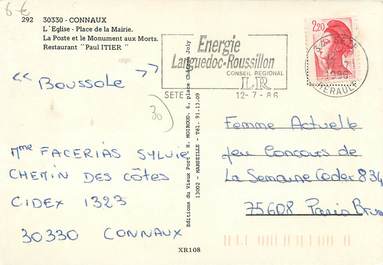 6 €
292 30330 - CONNAUX
L'Eglise - Place de la Mairie.
La Poste et le Monument aux Morts.
Restaurant "Paul ITIER"
<< Boussole >>
30
Mme FACERIAS SYLVIE
CHEMIN DES CÔTES
CIDEX 1323
30330 CONNAUX
Editions du Vieux Port - R. MOIROUD, 6, place Château Joly
13002 - MARSEILLE - Tél. 91.13.09
Energie
Languedoc-Roussillon
CONSEIL REGIONAL
LR
SETE
12-7-86
2,20
HERAULT
Femme Actuelle
Jeu Concours de
La Semaine Cedex 834
75608 Paris
XR108